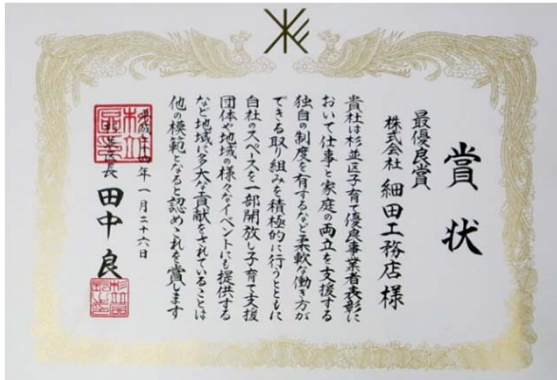 賞状
最優良賞
株式会社 細田工務店 様
貴社は杉並区子育て優良事業者表彰に
おいて仕事と家庭の両立を支援する
独自の制度を有するなど柔軟な働き方が
できる取り組みを積極的に行うとともに
自社のスペースを一部開放し子育て支援
団体や地域の様々なイベントにも提供する
など地域に多大な貢献をされていることは
他の模範となると認めこれを賞します
平成二十四年一月二十六日
杉並区長 田中良